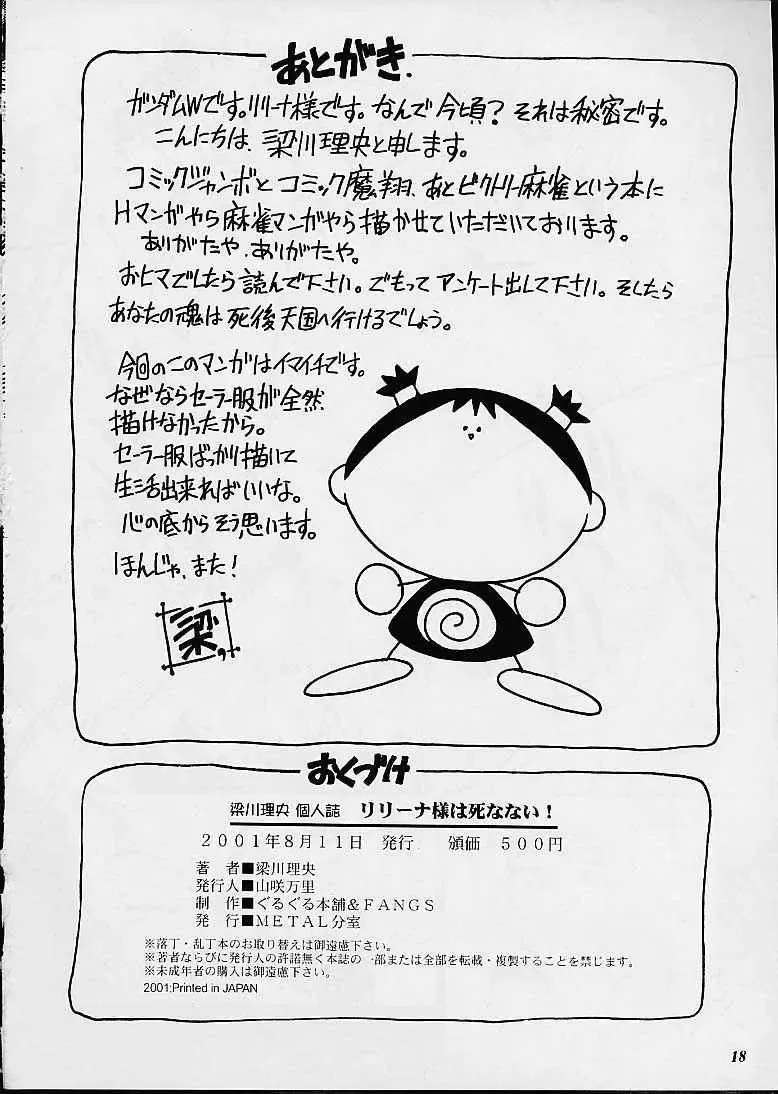 あとがき.
ガンダムWです。リリーナ様です。なんで今頃？それは秘密です。
こんにちは、梁川理央と申します。
コミックジャンボとコミック魔翔、あとビクトリー麻雀という本に
Hマンガやら麻雀マンガやら描かせていただいております。
ありがたや、ありがたや。
おヒマでしたら読んで下さい。でもってアンケート出して下さい。そしたら
あなたの魂は死後天国へ行けるでしょう。
今回のこのマンガはイマイチです。
なぜならセーラー服が全然
描けなかったから。
セーラー服ばっかり描いて
生活出来ればいいな。
心の底からそう思います。
ほんじゃ、また！
梁
おくづけ
梁川理央 個人誌 リリーナ様は死なない！
2001年8月11日 発行 頒価 500円
著 者■梁川理央
発行人■山咲万里
制 作■ぐるぐる本舗＆FANGS
発 行■METAL分室
※落丁・乱丁本のお取り替えは御遠慮下さい。
※著者ならびに発行人の許諾無く本誌の一部または全部を転載・複製することを禁じます。
※未成年者の購入は御遠慮下さい。
2001;Printed in JAPAN
18